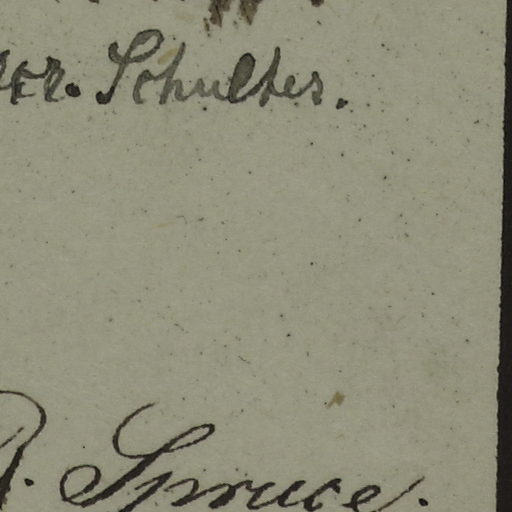 Schultes.
R. Spruce.